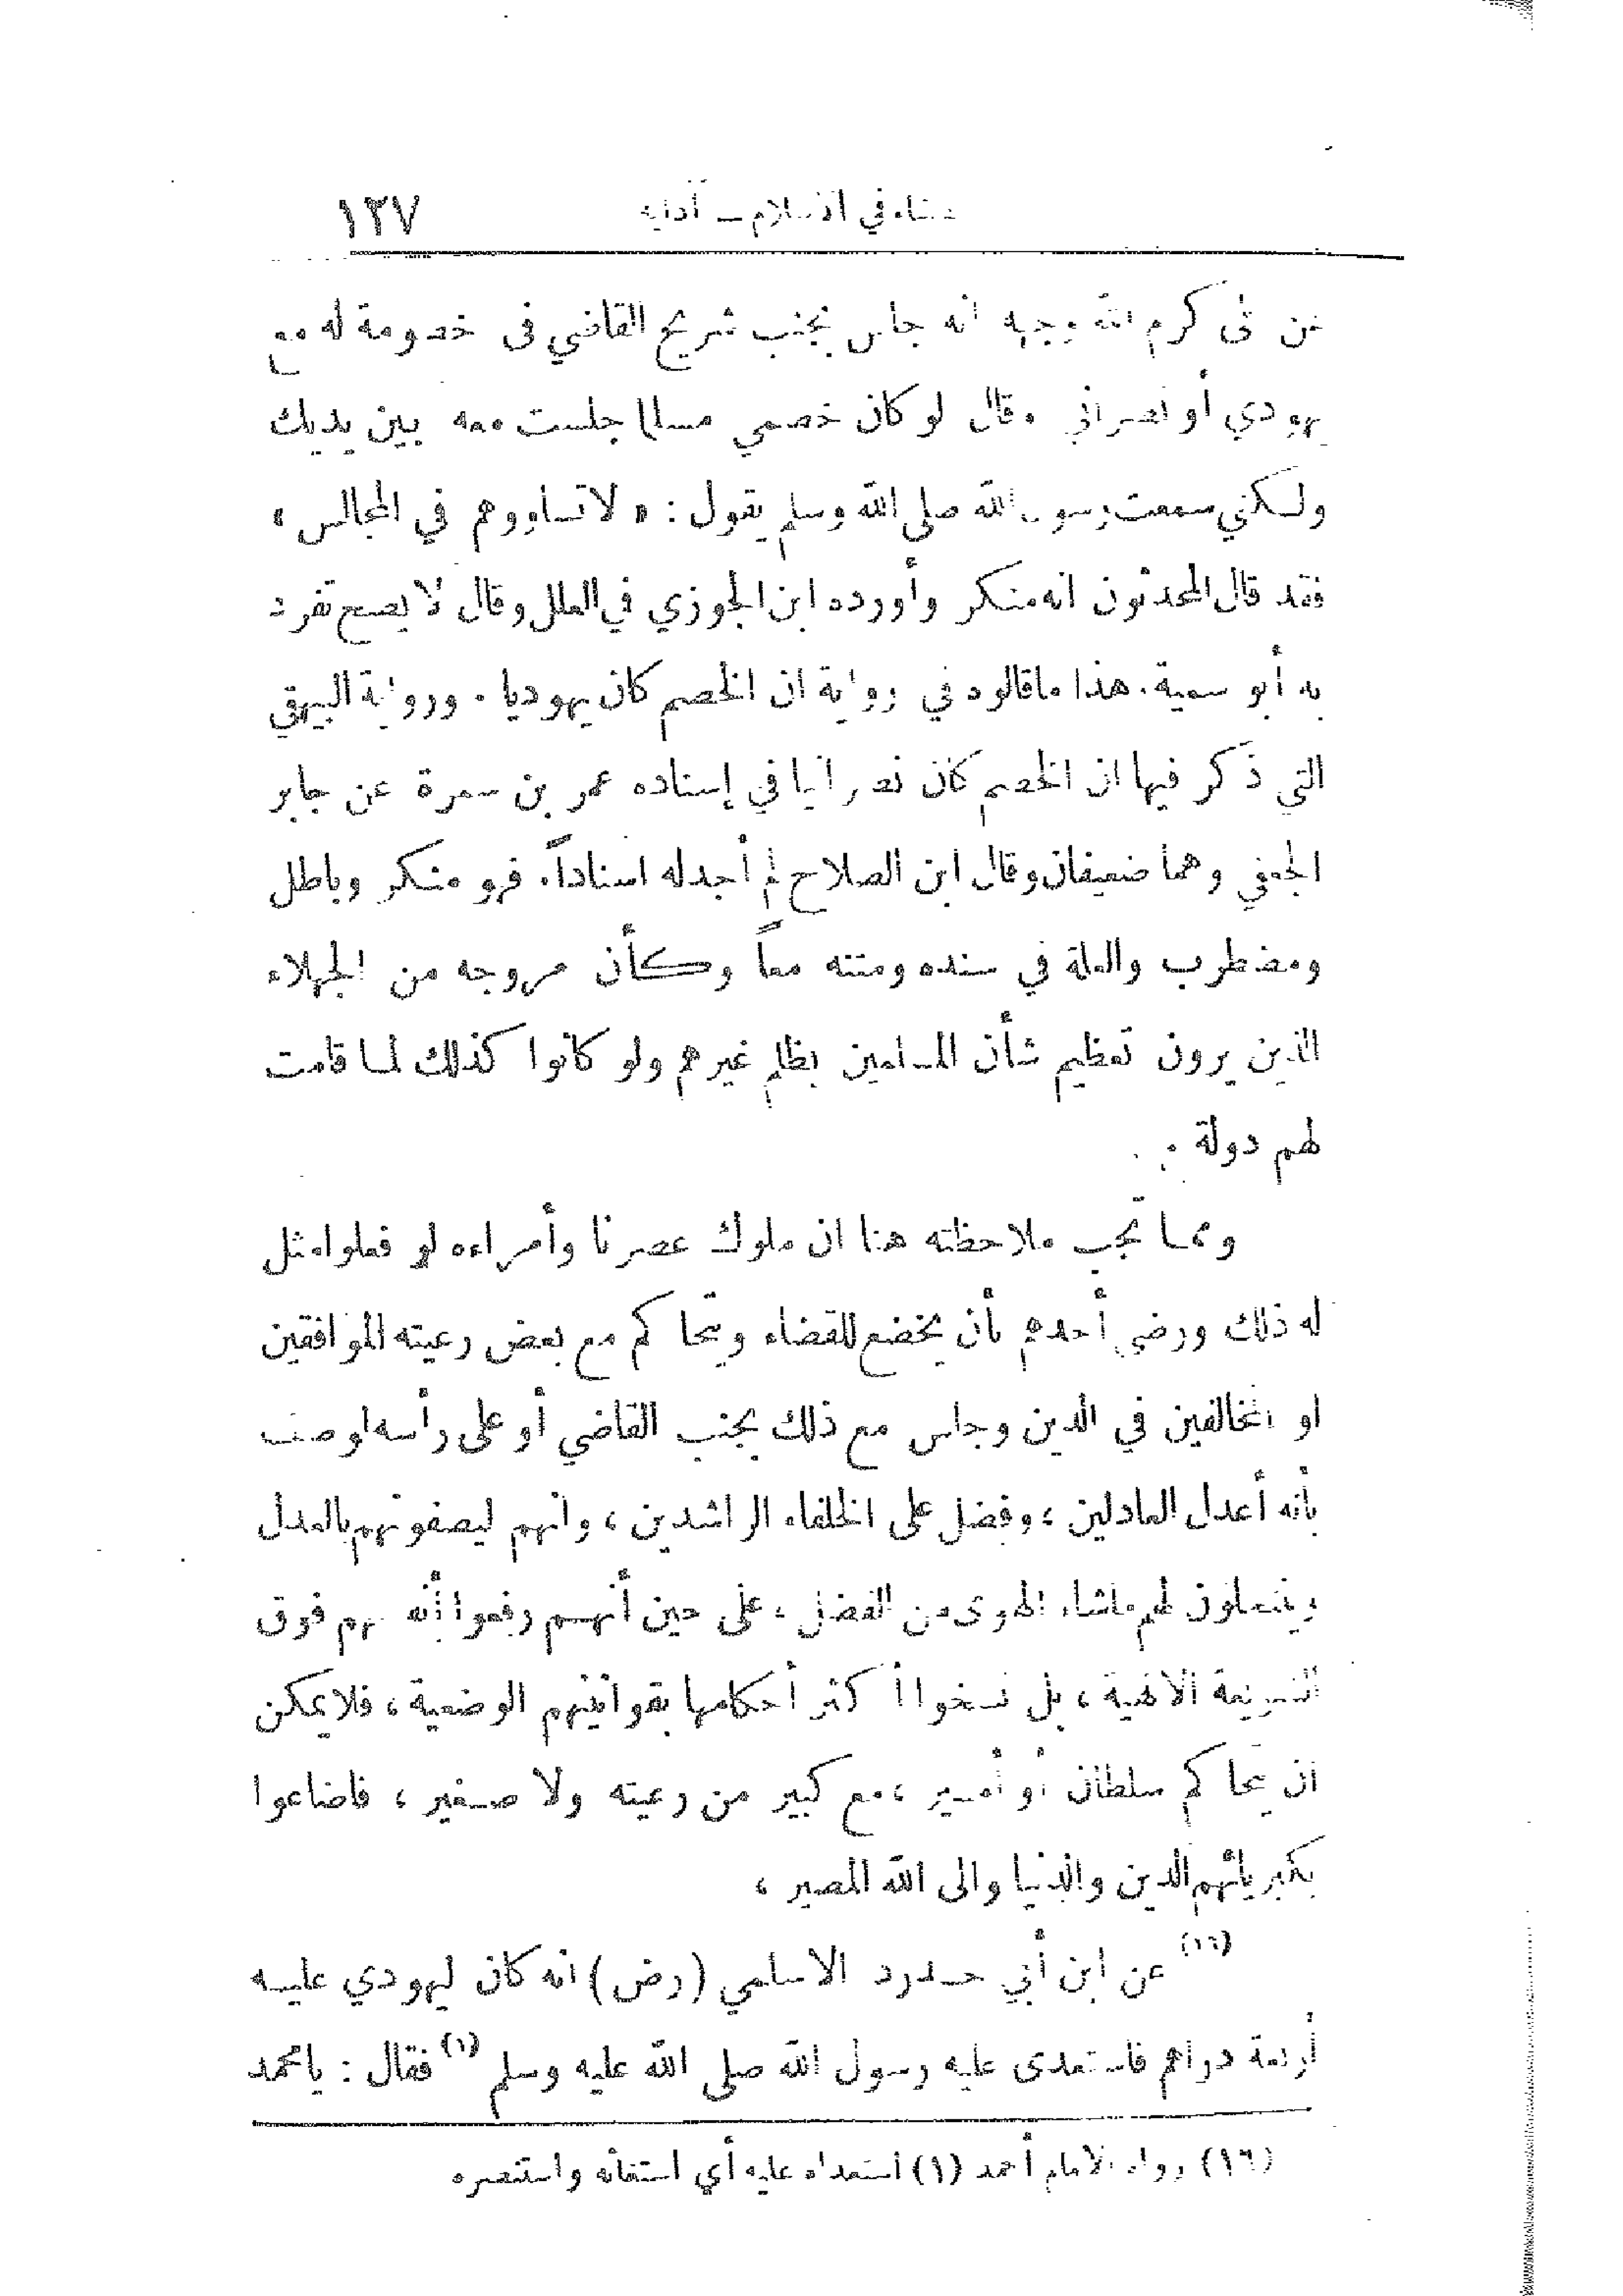 القضاء في الاسلام – آدابه ١٣٧
عن علي كرم الله وجهه انه جلس بجنب شريح القاضي في خصومة له مع
يهودي أو نصراني وقال لو كان خصمي مسلما جلست معه بين يديك
ولكني سمعت رسول الله صلى الله وسلم يقول : « لا تساووهم في المجالس »
فقد قال المحدثون انه منكر وأورده ابن الجوزي في العلل وقال لا يصح تفرد
به أبو سمية . هذا ما قالوه في رواية ان الخصم كان يهوديا . ورواية البيهقي
التي ذكر فيها ان الخصم كان نصرانيا في إسناده عمر بن سمرة عن جابر
الجعفي وهما ضعيفان وقال ابن الصلاح لم أجد له اسناداً . فهو منكر وباطل
ومضطرب والعلة في سنده ومتنه معاً وكأن مروجه من الجهلاء
الذين يرون تعظيم شأن المسلمين بظلم غيرهم ولو كانوا كذلك لما قامت
لهم دولة .
ومما تجب ملاحظته هنا ان ملوك عصرنا وأمراءه لو فعلوا مثل
له ذلك ورضي أحدهم بأن يخضع للقضاء ويتحاكم مع بعض رعيته الموافقين
او المخالفين في الدين وجلس مع ذلك بجنب القاضي أو على رأسه لوصف
بأنه أعدل العادلين ، وفضل على الخلفاء الراشدين ، وانهم ليصفونهم بالعدل
وينتحلون لهم ماشاء الهوى من الفضل ، على حين أنهم رفعوا أنفسهم فوق
الشريعة الالهية ، بل نسخوا أكثر أحكامها بقوانينهم الوضعية ، فلا يمكن
ان يتحاكم سلطان أو أمير ، مع كبير من رعيته ولا صغير ، فاضاعوا
بكبريائهم الدين والدنيا والى الله المصير ،
(١٦) عن ابن أبي حدرد الاسلمي (رض) انه كان ليهودي عليه
أربعة دراهم فاستعدى عليه رسول الله صلى الله عليه وسلم (١) فقال : يامحمد
(١٦) رواه الامام أحمد (١) استعداه عليه أي استغاثه واستنصره